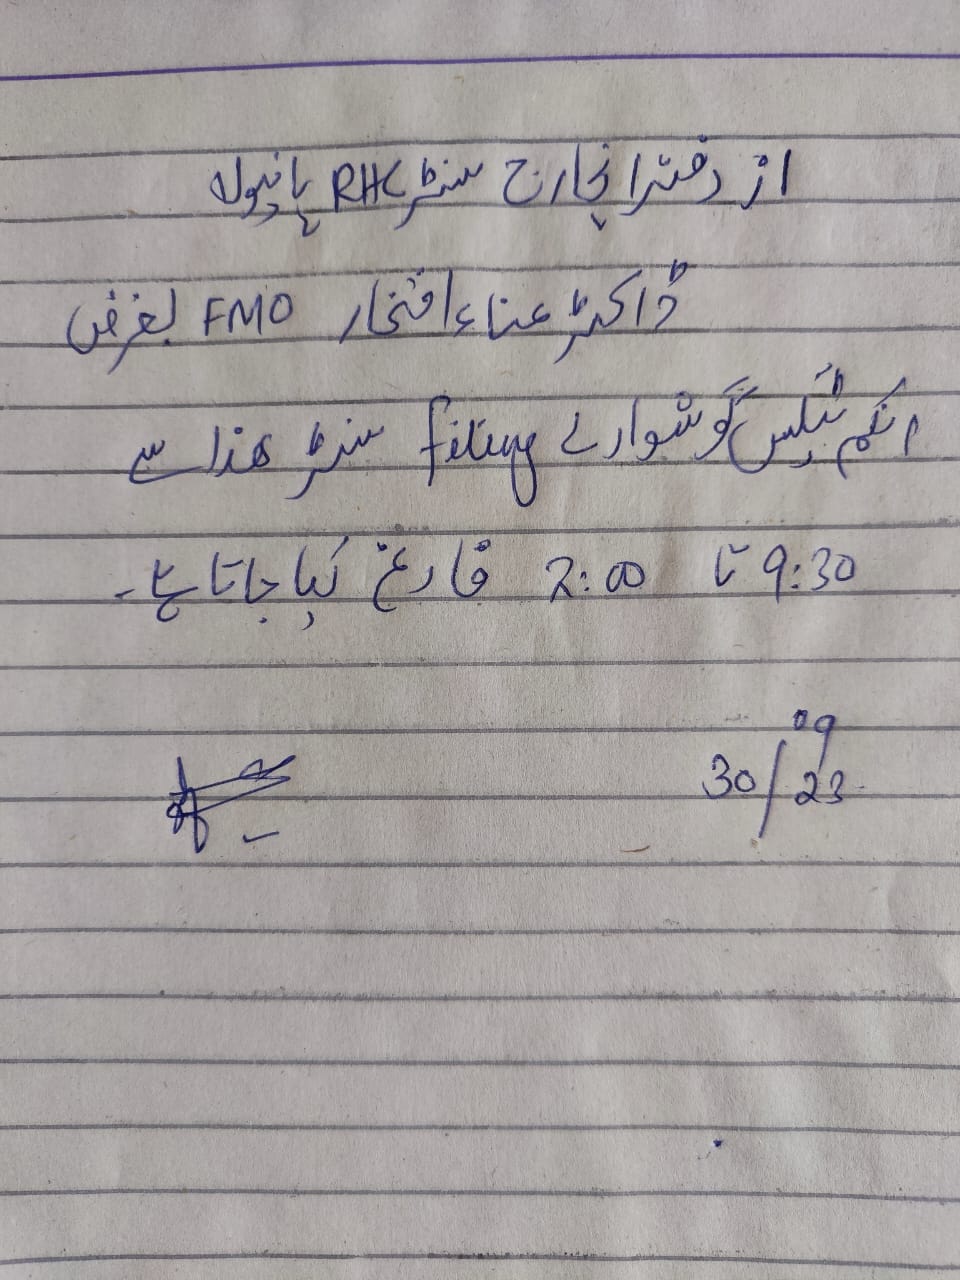 از دفتر انچارج سنٹر RHC پانیولہ
ڈاکٹر عناء افتخار FMO بغرض
انکم ٹیکس گوشوارے filing سنٹر ھذا سے
9:30 تا 2:00 فارغ کیا جاتا ہے۔
30/09
23